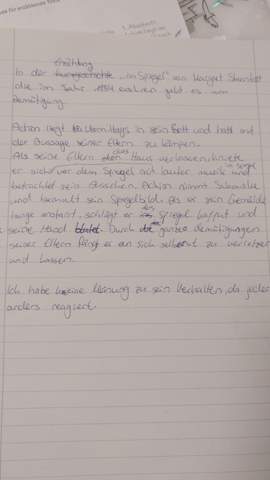 se für erzählende Texte
1. Absatz
Erzählung
In der "im Spiegel" von Margret Steenfatt
die im Jahr 1984 erschien geht es um
Demütigung.
Achim liegt Mittags in sein Bett und hatt mit
der Aussage seiner Eltern zu kämpfen.
Als seine Eltern das Haus verlassen
er sich vor dem Spiegel mit lauter musik und
betrachtet sein Aussehen. Achim nimmt
und bemalt sein Spiegelbild. Als er sein Gemälde
lange anstarrt, schlägt er den Spiegel kaputt und
seine Hand blutet. Durch die ganze demütigungen
seiner Eltern fängt er an sich selbst zu verletzen
und hassen.
Ich habe keine Meinung zu sein Verhalten, da jeder
anders reagiert.